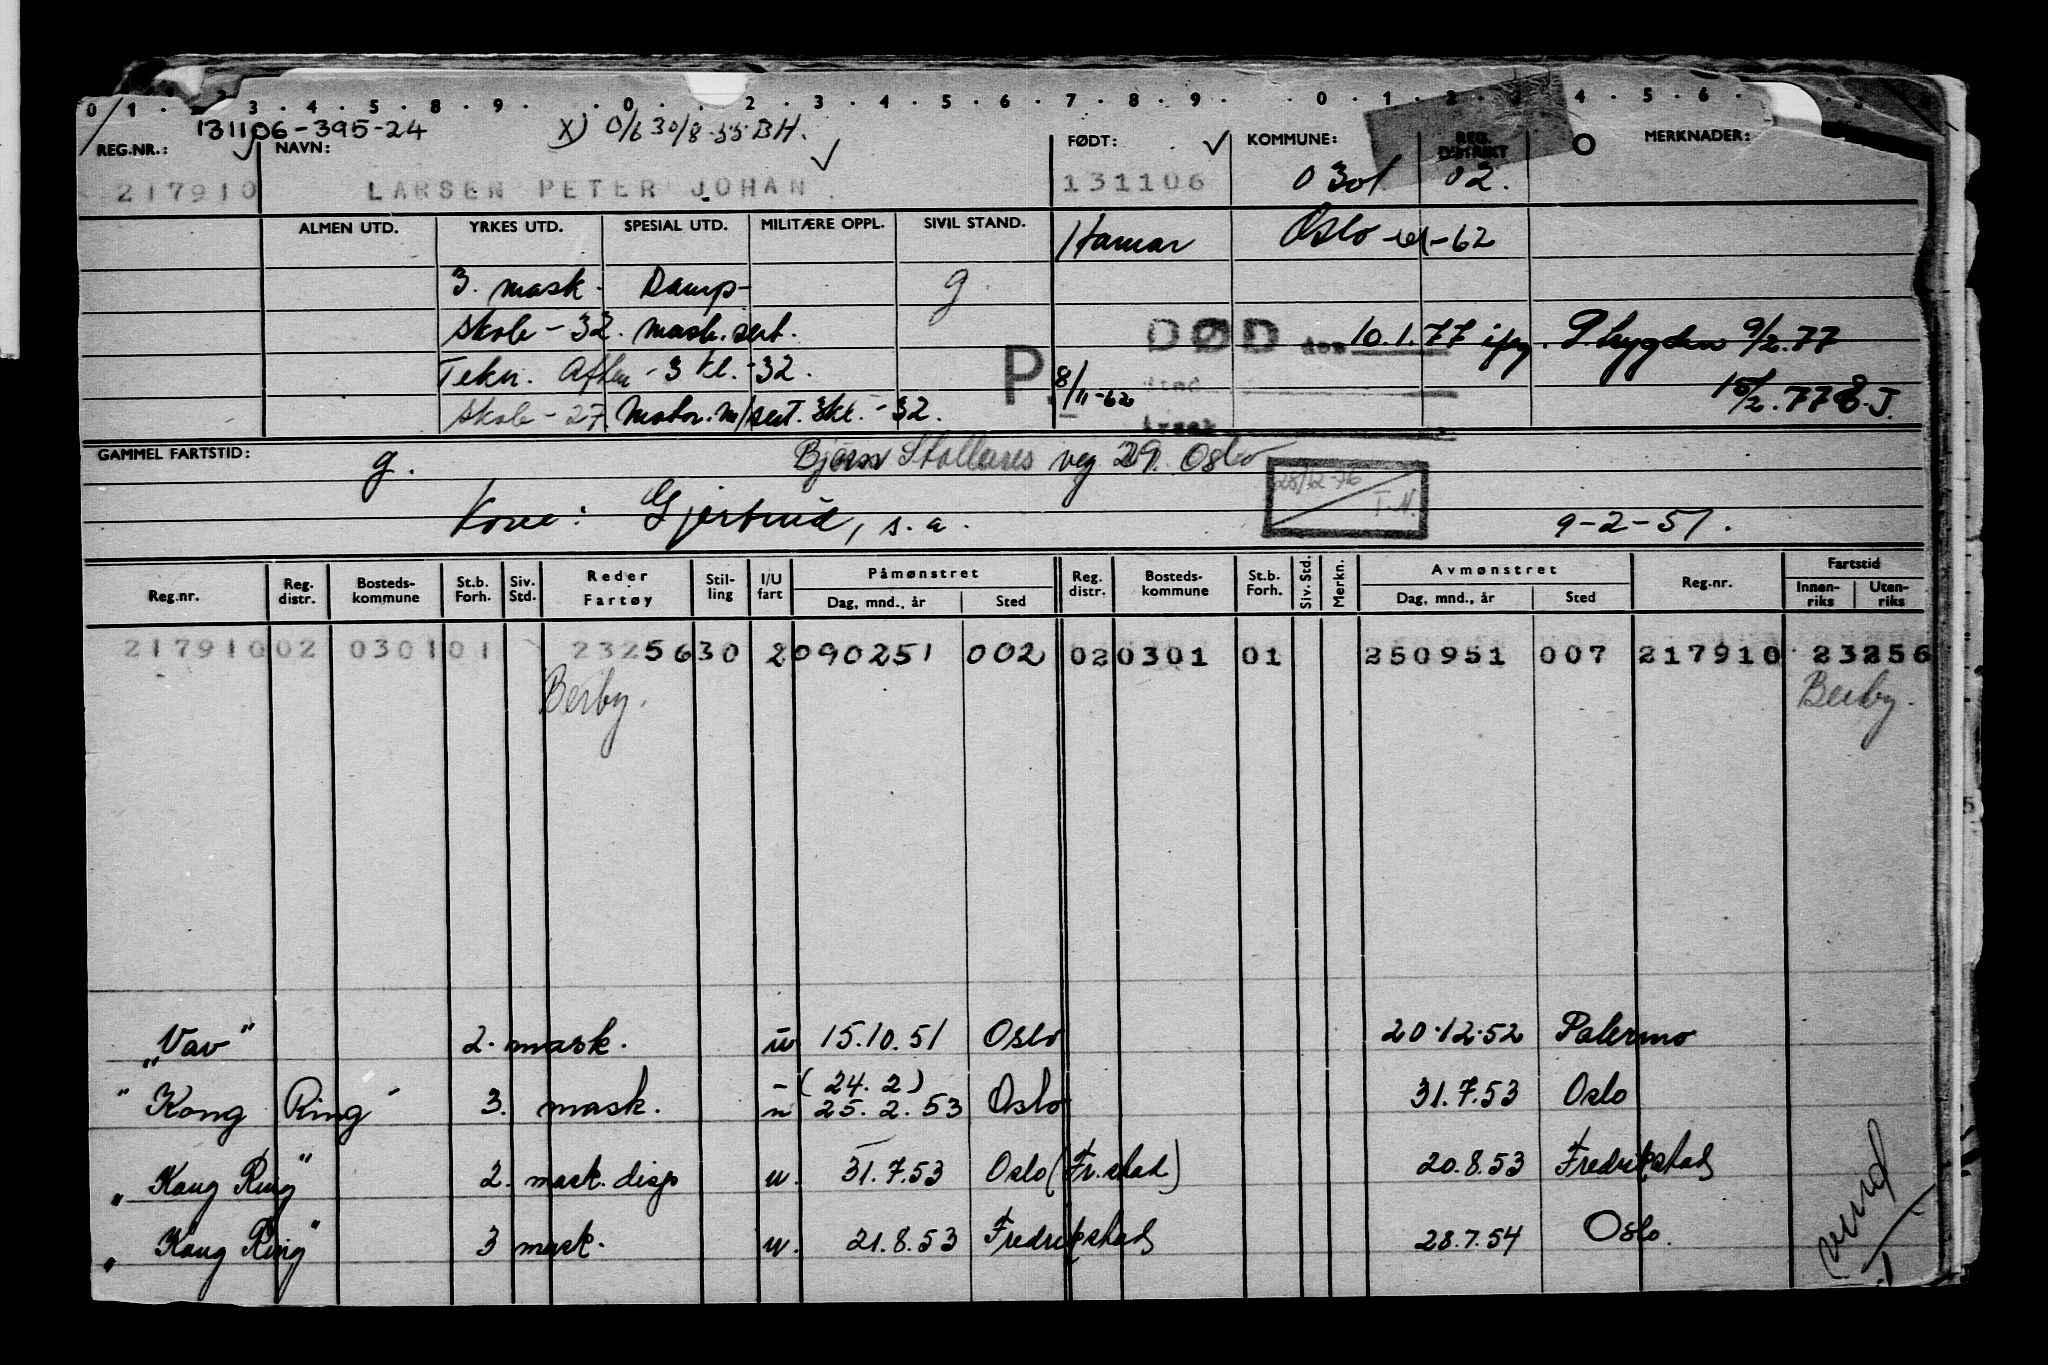 0 1 . 2 3 . 4 . 5 . 8 . 9 . . 0 . . 2 . 3 . 4 . 5 . 6 . 7 . 8 . 9 . 0 . 1 . 2 . 3 . 4 . 5 . 6 .
131106-395-24 X) 0/6 30/8-55 BH.
REG.NR.: NAVN: FØDT: KOMMUNE: REG. DISTRIKT MERKNADER:
217910 LARSEN PETER JOHAN 131106 0301 02.
ALMEN UTD. YRKES UTD. SPESIAL UTD. MILITÆRE OPPL. SIVIL STAND. Hamar Oslo -62
3. mask. Damp- g.
skole - 32. mask.sert. DØD den 10.1.77 ifg. 9/2.77
Tekn. Aften - 3 kl. - 32. P. 8/11-62 15/2.77 E.J.
skole - 27 Motor.m/sert. 3kl. - 32.
GAMMEL FARTSTID: g. Bjørn Stallares veg 29. Oslo
28/12-76 T.N.
Kone: Gjertrud, s.a. 9-2-51.
Reg.nr. Reg. distr. Bosteds- kommune St.b. Forh. Siv. Std. Reder Fartøy Stil- ling I/U fart Påmønstret Dag, mnd., år Sted Reg. distr. Bosteds- kommune St.b. Forh. Siv. Std. Merkn. Avmønstret Dag, mnd., år Sted Reg.nr. Fartstid Innen- riks Uten- riks
217910 02 0301 01 23256 30 2 090251 002 02 0301 01 250951 007 217910 23256
Berby. Berby.
"Vav" 2. mask. u 15.10.51 Oslo 20.12.52 Palermo
"Kong Ring" 3. mask. - u (24.2) 25.2.53 Oslo 31.7.53 Oslo
"Kong Ring" 2. mask. disp u. 31.7.53 Oslo (Fr.stad) 20.8.53 Fredrikstad
"Kong Ring" 3 mask. u. 21.8.53 Fredrikstad 28.7.54 Oslo.
vend